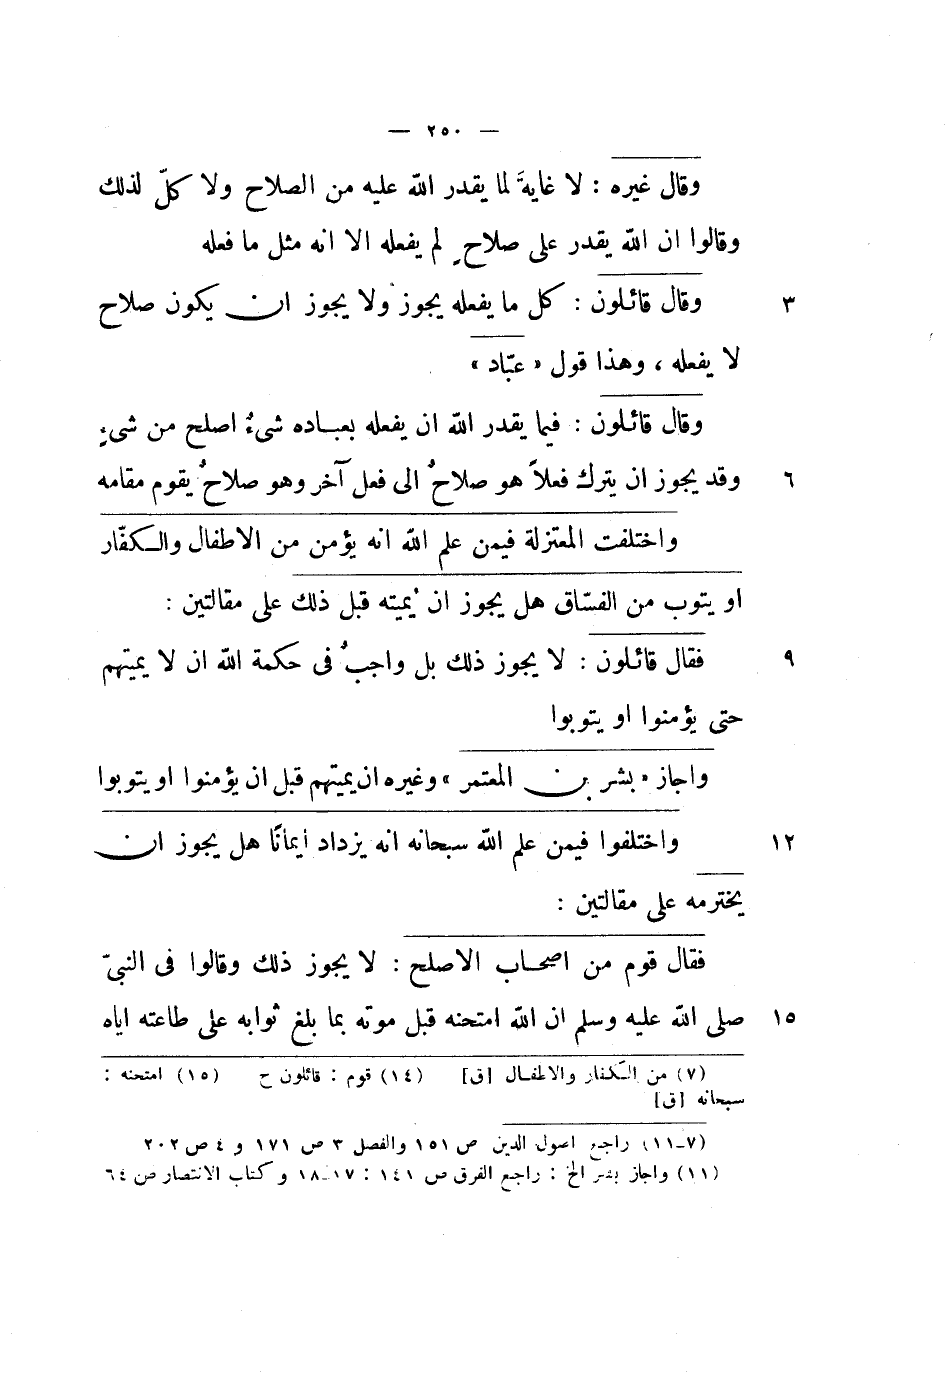 — ٢٥٠ —
وقال غيره : لا غايةَ لما يقدر الله عليه من الصلاح ولا كلّ لذلك
وقالوا ان الله يقدر على صلاحٍ لم يفعله الا انه مثل ما فعله
٣ وقال قائلون : كل ما يفعله يجوز ولا يجوز ان يكون صلاح
لا يفعله ، وهذا قول « عبّاد »
وقال قائلون : فيما يقدر الله ان يفعله بعباده شىءٌ اصلح من شىءٍ
٦ وقد يجوز ان يترك فعلاً هو صلاحٌ الى فعل آخر وهو صلاحٌ يقوم مقامه
واختلفت المعتزلة فيمن علم الله انه يؤمن من الاطفال والكفّار
او يتوب من الفسّاق هل يجوز ان يُميته قبل ذلك على مقالتين :
٩ فقال قائلون : لا يجوز ذلك بل واجبٌ فى حكمة الله ان لا يميتهم
حتى يؤمنوا او يتوبوا
واجاز « بشر بن المعتمر » وغيره ان يميتهم قبل ان يؤمنوا او يتوبوا
١٢ واختلفوا فيمن علم الله سبحانه انه يزداد أيمانًا هل يجوز ان
يخترمه على مقالتين :
فقال قوم من اصحاب الاصلح : لا يجوز ذلك وقالوا فى النبىّ
١٥ صلى الله عليه وسلم ان الله امتحنه قبل موته بما بلغ ثوابه على طاعته اياه
(٧) من الكفار والاطفال [ق] (١٤) قوم : قائلون ح (١٥) امتحنه :
سبحانه [ق]
(٧-١١) راجع اصول الدين ص ١٥١ والفصل ٣ ص ١٧١ و ٤ ص ٢٠٢
(١١) واجاز بشر الخ : راجع الفرق ص ١٤١ : ١٧-١٨ وكتاب الانتصار ص ٦٤